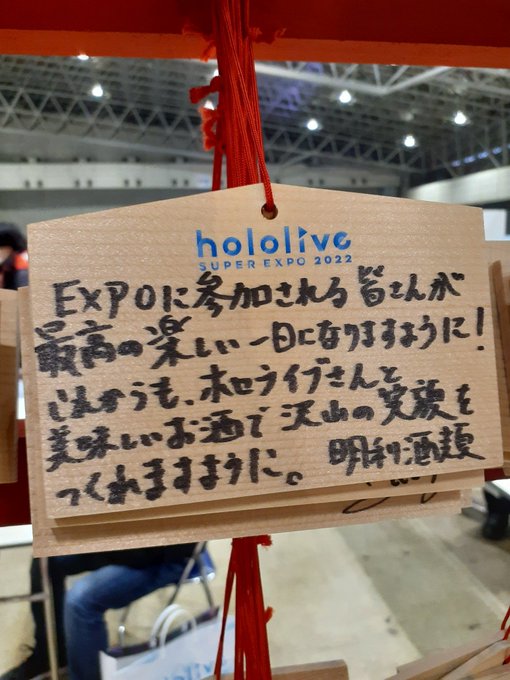 hololive
SUPER EXPO 2022
EXPOに参加される皆さんが
最高の楽しい一日になりますように!
これからも、ホロライブさんと
美味しいお酒で沢山の笑顔を
つくれますように。 明利酒類
hololive